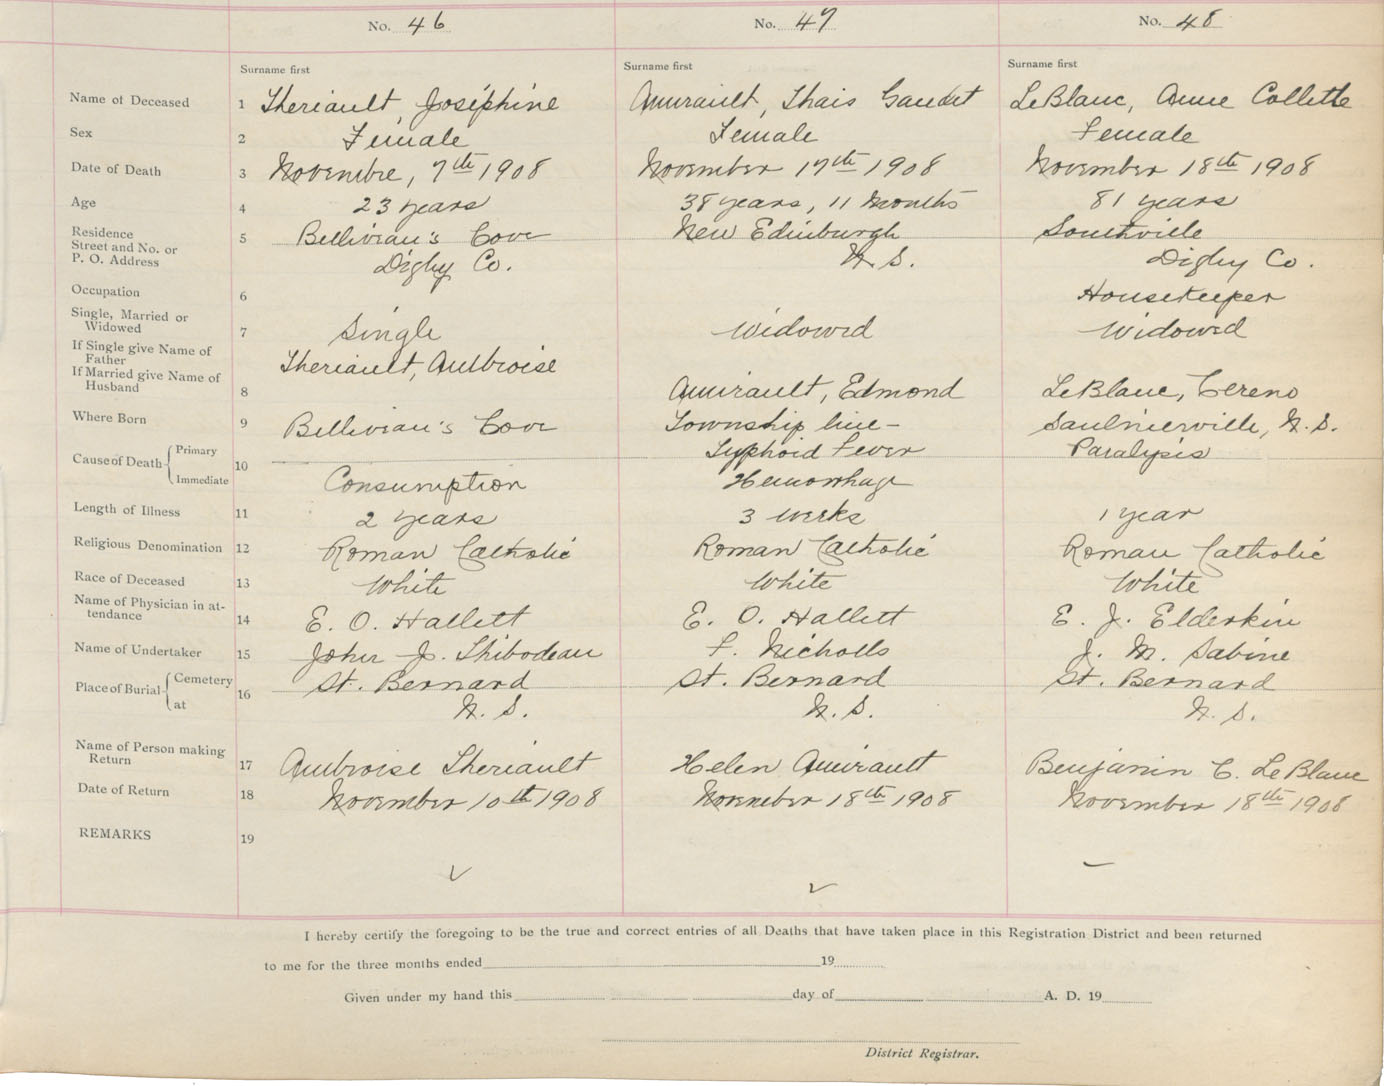 No. 46 No. 47 No. 48
Surname first Surname first Surname first
Name of Deceased 1 Theriault, Joséphine Amirault, Thais Gaudet LeBlanc, Anne Collette
Sex 2 Female Female Female
Date of Death 3 Novembre, 7th 1908 November 17th 1908 November 18th 1908
Age 4 23 years 38 years, 11 Months 81 years
Residence 5 Belliviau's Cove New Edinburgh Southville
Street and No. or
P. O. Address Digby Co. N. S. Digby Co.
Occupation 6 Housekeeper
Single, Married or
Widowed 7 Single Widowed Widowed
If Single give Name of
Father Theriault, Ambroise
If Married give Name of
Husband 8 Amirault, Edmond LeBlanc, Cereno
Where Born 9 Belliviau's Cove Township line- Saulnierville, N. S.
Cause of Death Primary 10 Typhoid Fever Paralysis
Immediate Consumption Hemorrhage
Length of Illness 11 2 years 3 weeks 1 year
Religious Denomination 12 Roman Catholic Roman Catholic Roman Catholic
Race of Deceased 13 White White White
Name of Physician in at-
tendance 14 E. O. Hallett E. O. Hallett E. J. Elderkin
Name of Undertaker 15 John J. Thibodeau F. Nicholls J. M. Sabine
Place of Burial Cemetery 16 St. Bernard St. Bernard St. Bernard
at N. S. N. S. N. S.
Name of Person making
Return 17 Ambroise Theriault Helen Amirault Benjamin C. LeBlanc
Date of Return 18 November 10th 1908 November 18th 1908 November 18th 1908
REMARKS 19
I hereby certify the foregoing to be the true and correct entries of all Deaths that have taken place in this Registration District and been returned
to me for the three months ended 19
Given under my hand this day of A. D. 19
District Registrar.